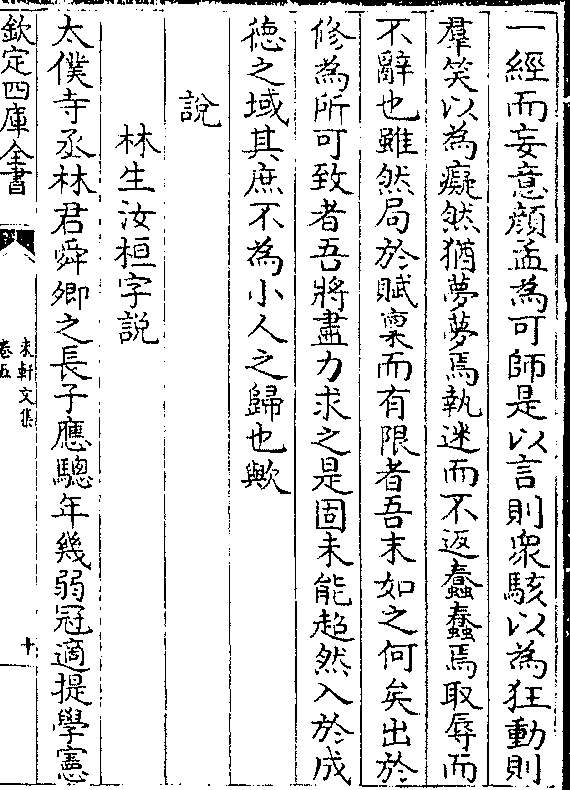 一經而妄意顔孟為可師是以言則衆駭以為狂動則
羣笑以為癡然猶夢夢焉執迷而不返蠢蠢焉取辱而
不辭也雖然局於賦稟而有限者吾末如之何矣出於
修為所可致者吾將盡力求之是固未能超然入於成
徳之域其庶不為小人之歸也歟
說
林生汝桓字說
太僕寺丞林君舜卿之長子應驄年幾弱冠適提學憲
欽定四庫全書
未軒文集
卷五
十